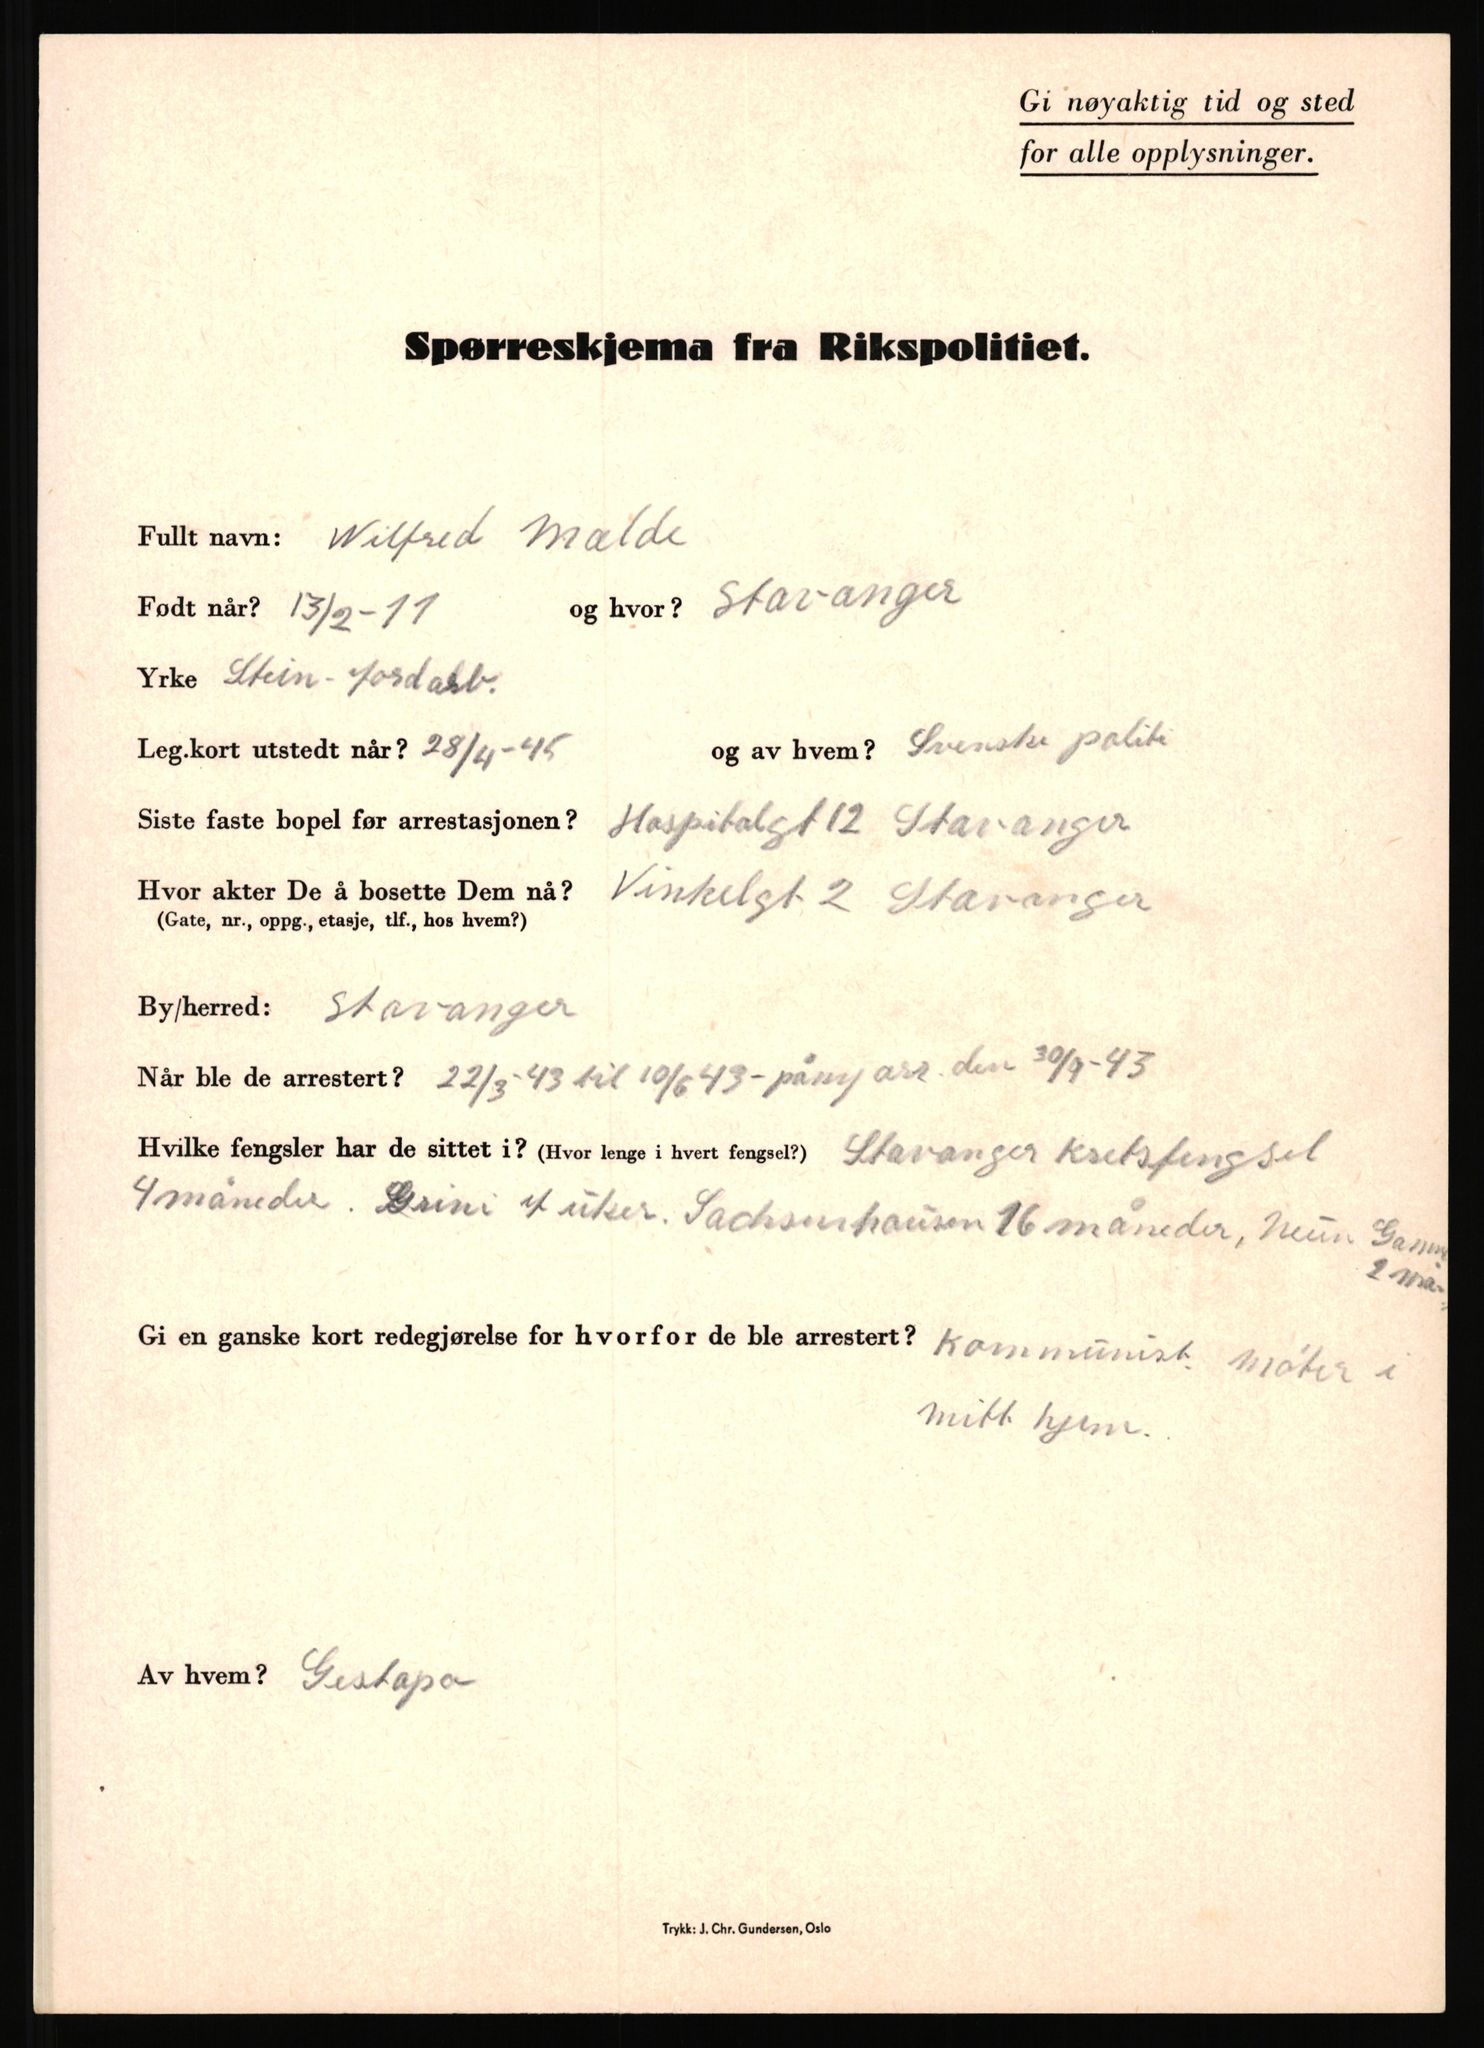 Gi nøyaktig tid og sted
for alle opplysninger.
Spørreskjema fra Rikspolitiet.
Fullt navn: Wilfred Malde
Født når? 13/2-11 og hvor? Stavanger
Yrke Stein-jordarb.
Leg.kort utstedt når? 28/4-45 og av hvem? Svenske politi
Siste faste bopel før arrestasjonen? Hospitalgt 12 Stavanger
Hvor akter De å bosette Dem nå? Vinkelgt 2 Stavanger
(Gate, nr., oppg., etasje, tlf., hos hvem?)
By/herred: Stavanger
Når ble de arrestert? 22/3-43 til 10/6 43- påny arr. den 30/9-43
Hvilke fengsler har de sittet i? (Hvor lenge i hvert fengsel?) Stavanger Kretsfengsel
4 måneder. Grini uker. Sachsenhausen 16 måneder, Neun Gamme
2 må-
Gi en ganske kort redegjørelse for hvorfor de ble arrestert? Kommunist. Möter i
mitt hjem.
Av hvem? Gestapo
Trykk: J. Chr. Gundersen, Oslo